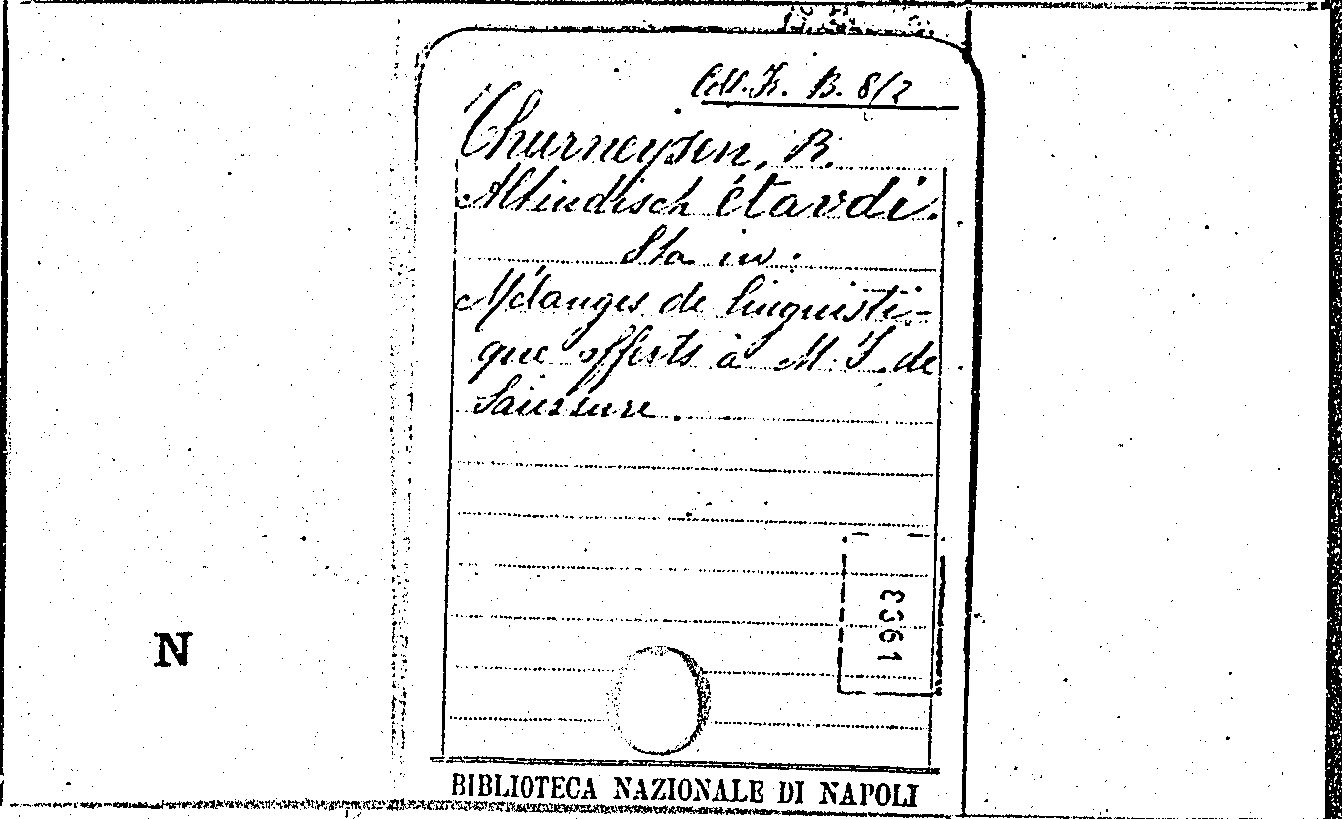 Coll. It. B. 8/2
Thurneysen, R.
Altindisch étavdi.
Sta in:
Mélanges de linguisti-
que offerts à M. F. de
Saussure.
1963
N
BIBLIOTECA NAZIONALE DI NAPOLI